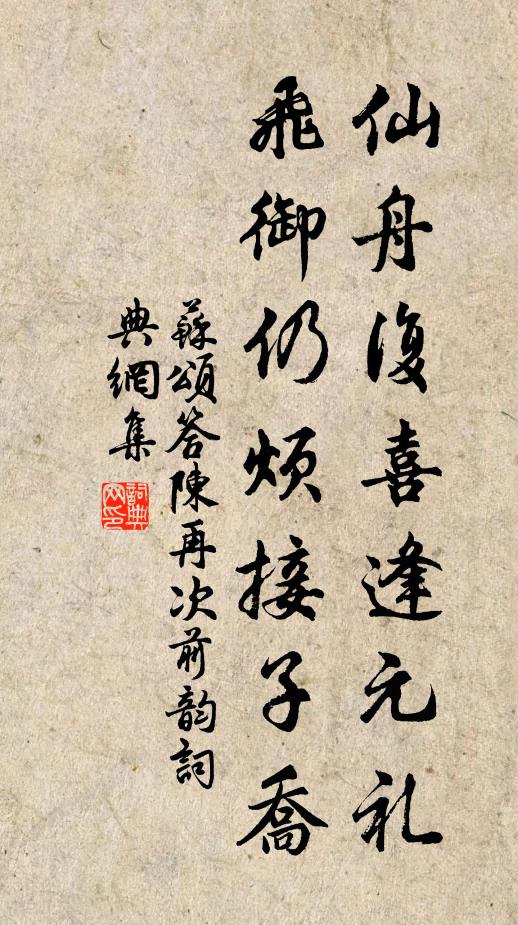 仙舟復喜逢元礼
飛御仍煩接子喬
蘇頌答陳再次前韵詞
典網集
詞典網印